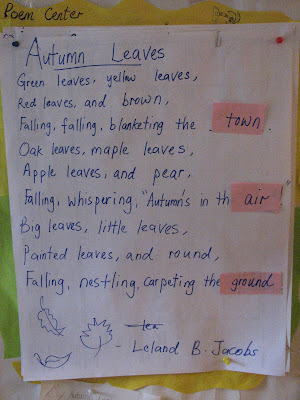 Poem Center
Autumn Leaves
Green leaves, yellow leaves,
Red leaves, and brown,
Falling, falling, blanketing the town.
Oak leaves, maple leaves,
Apple leaves, and pear,
Falling, whispering, "Autumn's in th air
Big leaves, little leaves,
Painted leaves, and round,
Falling, nestling, carpeting the ground
- Leland B. Jacobs